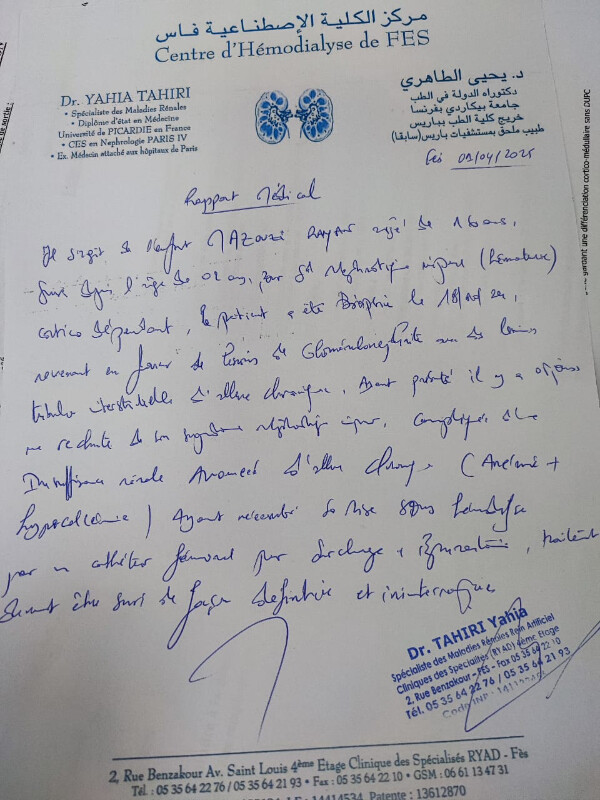 مركز الكلية الإصطناعية فاس
Centre d'Hémodialyse de FES
Dr. YAHIA TAHIRI
• Spécialiste des Maladies Rénales
• Diplôme d'état en Médecine
Université de PICARDIE en France
• CES en Nephrologie PARIS IV
• Ex. Médecin attaché aux hôpitaux de Paris
د. يحيى الطاهري
دكتوراه الدولة في الطب
جامعة بيكاردي بفرنسا
خريج كلية الطب بباريس
طبيب ملحق بمستشفيات باريس (سابقا)
Fès
Rapport Médical
Il s'agit de l'enfant MAZOUZI RAYAN âgé de 16 ans,
suivi depuis l'âge de 02 ans, pour Sd Néphrotique impure (hématurie)
cortico dépendant, le patient a été Biopsié le
revenant en faveur de lésions de Glomérulonéphrite
tubulo interstitielles d'allure chronique, Ayant présenté il y a
une rechute de son syndrome néphrotique impur, compliqué d'une
Insuffisance rénale Avancée d'allure chronique (Anémie +
hypocalcémie) Ayant nécessité la mise sous hémodialyse
par un cathéter fémoral pour surcharge + traitement
devant être suivi de façon définitive et ininterrompue
Dr. TAHIRI Yahia
Spécialiste des Maladies Rénales Rein Artificiel
Cliniques des Specialités (RYAD) 4ème Etage
2, Rue Benzakour - FÈS - Fax 05 35 64 22 10
Tél. 05 35 64 22 76 / 05 35 64 21 93
2, Rue Benzakour Av. Saint Louis 4ème Etage Clinique des Spécialisés RYAD - Fès
Tél. : 05 35 64 22 76 / 05 35 64 21 93 • Fax : 05 35 64 22 10 • GSM : 06 61 13 47 31
Patente : 13612870
gardant une différenciation cortico-médullaire sans DUPC